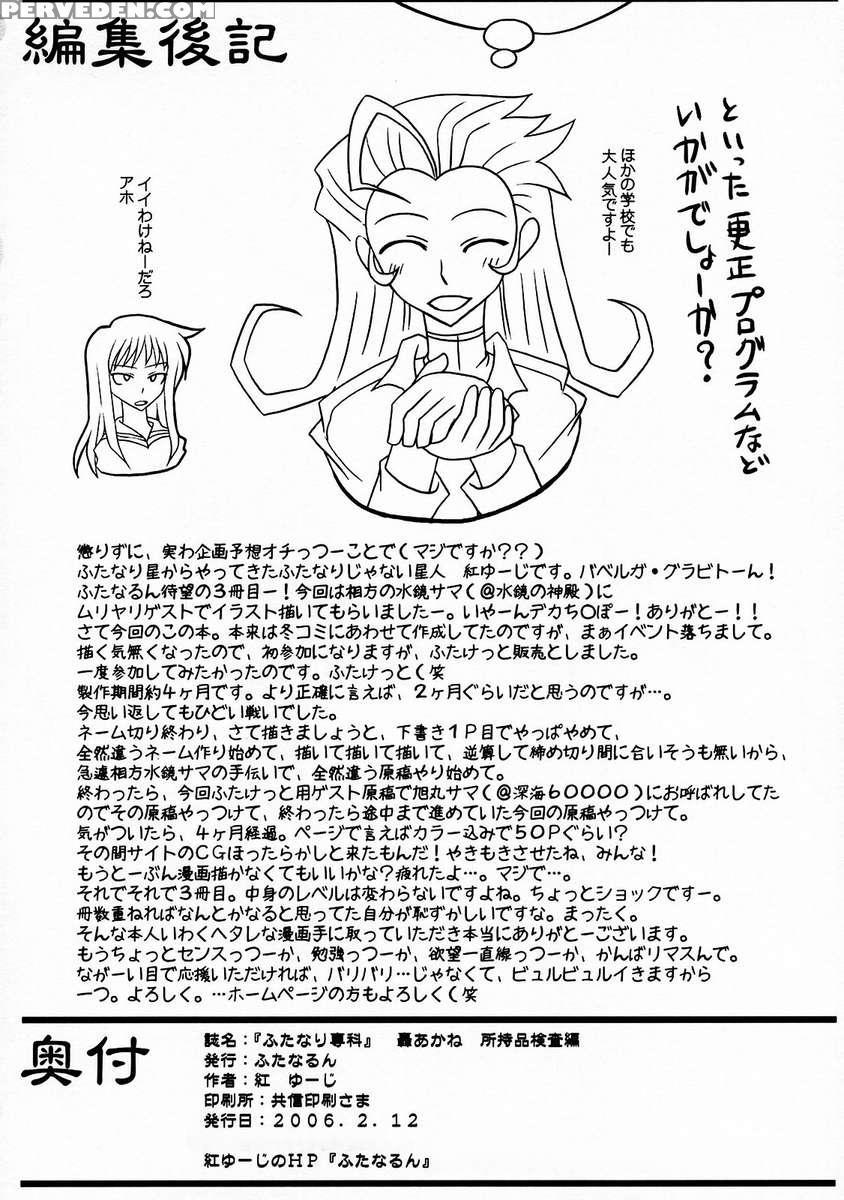 PERVEDEN.COM
編集後記
といった更正プログラムなど
いかがでしょーか？
ほかの学校でも
大人気ですよー
イイわけねーだろ
アホ
懲りずに、実わ企画予想オチっつーことで(マジですか？？)
ふたなり星からやってきたふたなりじゃない星人　紅ゆーじです。バベルガ・グラビトーん！
ふたなるん待望の3冊目ー！今回は相方の水鏡サマ(@水鏡の神殿)に
ムリヤリゲストでイラスト描いてもらいましたー。いやーんデカち○ぽー！ありがとー！！
さて今回のこの本。本来は冬コミにあわせて作成してたのですが、まぁイベント落ちまして。
描く気無くなったので、初参加になりますが、ふたけっと販売としました。
一度参加してみたかったのです。ふたけっと(笑
製作期間約4ヶ月です。より正確に言えば、2ヶ月ぐらいだと思うのですが…。
今思い返してもひどい戦いでした。
ネーム切り終わり、さて描きましょうと、下書き1P目でやっぱやめて、
全然違うネーム作り始めて、描いて描いて描いて、逆算して締め切り間に合いそうも無いから、
急遽相方水鏡サマの手伝いで、全然違う原稿やり始めて。
終わったら、今回ふたけっと用ゲスト原稿で旭丸サマ(@深海60000)にお呼ばれしてた
のでその原稿やっつけて、終わったら途中まで進めていた今回の原稿やっつけて。
気がついたら、4ヶ月経過。ページで言えばカラー込みで50Pぐらい？
その間サイトのCGほったらかしと来たもんだ！やきもきさせたね、みんな！
もうとーぶん漫画描かなくてもいいかな？疲れたよ…。マジで…。
それでそれで3冊目。中身のレベルは変わらないですよね。ちょっとショックですー。
冊数重ねればなんとかなると思ってた自分が恥ずかしいですな。まったく。
そんな本人いわくヘタレな漫画手に取っていただき本当にありがとーございます。
もうちょっとセンスっつーか、勉強っつーか、欲望一直線っつーか、かんばリマスんで。
ながーい目で応援いただければ、バリバリ…じゃなくて、ビュルビュルイきますから
一つ。よろしく。…ホームページの方もよろしく(笑
奥付
誌名：『ふたなり専科』　轟あかね　所持品検査編
発行：ふたなるん
作者：紅　ゆーじ
印刷所：共信印刷さま
発行日：2006.2.12
紅ゆーじのHP『ふたなるん』